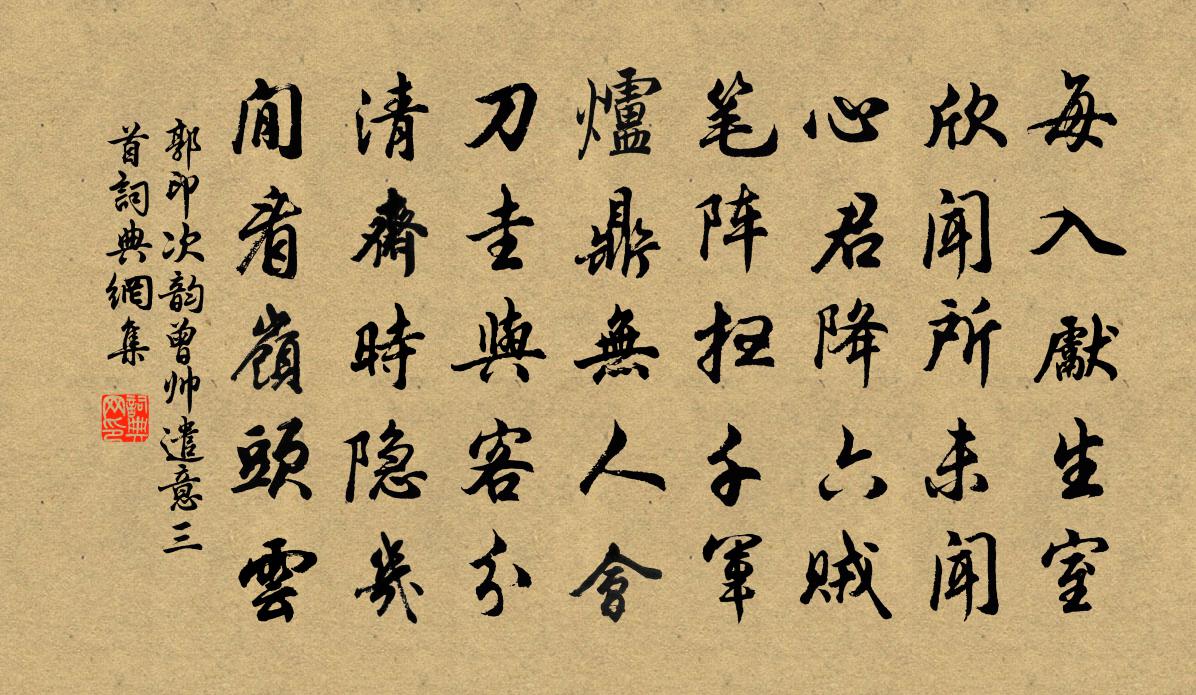 每入獻生室
欣聞所未聞
心君降六賊
笔阵扫千軍
爐鼎無人會
刀圭與客分
清齋時隐幾
閒看嶺頭雲
郭印次韵曾帅遣意三
首詞典網集
詞典
网印